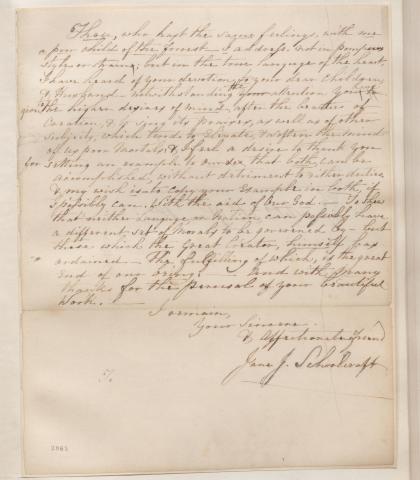 Thou, who hast the same feelings, with me
a poor child of the forest I address not in pompous
style or strains, but in the true language of the heart,
I have heard of your devotion, to your dear Children
& Husband notwithstanding the attention you
give the higher desires of mind, after the beauties of
Creation, & of sing its praises, as well as of other
Subjects, which tends to Elevate, & soften the minds
of us poor Mortals, & I feel a desire to thank you
for setting an example to our sex that both, can be
accomplished, without detriment to either duties
& my wish is to Copy your Example in both, if
I possibly can, with the aid of our God
that neither Language or Nation, can possibly have
a different, set of Morals to be governed by - but
those which the Great Creator, himself has
ordained - The fulfilling of which, is the great
End of our being: - And with many
thanks for the perusal of your beautiful
Work. -
I remain,
Your Sincere
& Affectionate friend
Jane J. Schoolcraft